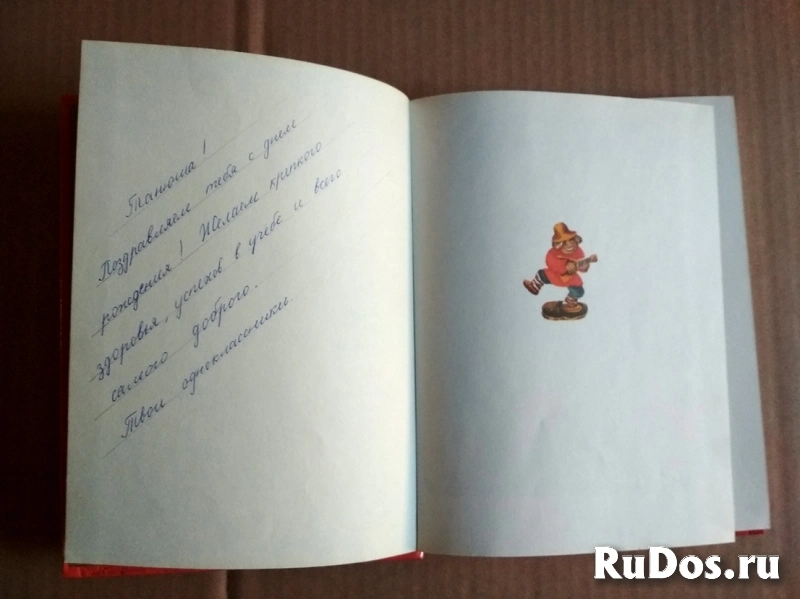 Танюша!
Поздравляем тебя с днем
рождения! Желаем крепкого
здоровья, успехов в учебе и всего
самого доброго.
Твои одноклассники.
RuDos.ru